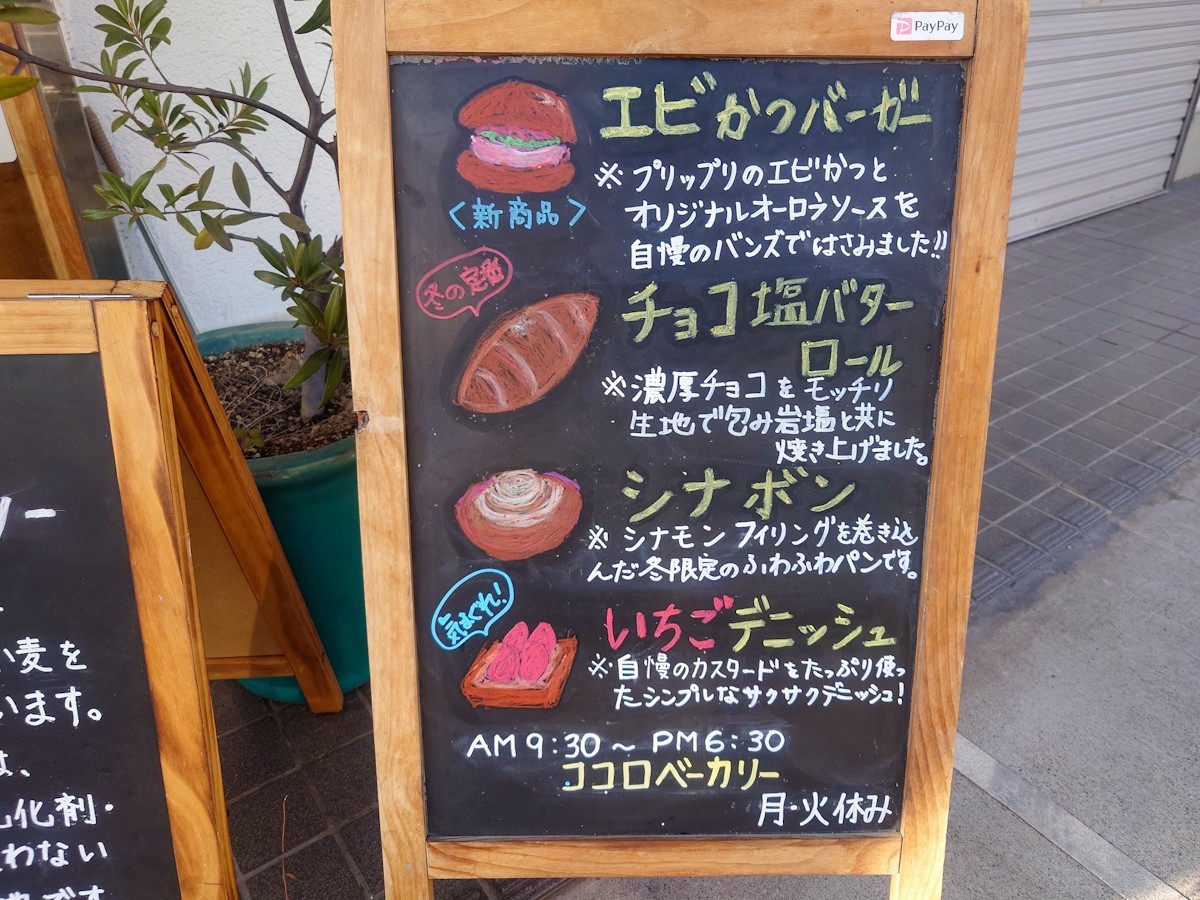 PayPay
エビかつバーガー
※プリップリのエビかつと
オリジナルオーロラソースを
自慢のバンズではさみました!!
<新商品>
冬の定番
チョコ塩バター
ロール
※濃厚チョコをモッチリ
生地で包み岩塩と共に
焼き上げました。
シナボン
※シナモンフィリングを巻き込
んだ冬限定のふわふわパンです。
気まぐれ!
いちごデニッシュ
※自慢のカスタードをたっぷり使っ
たシンプルなサクサクデニッシュ!
AM9:30~PM6:30
ココロベーカリー
月・火休み
リー
麦を
います。
は、
化剤・
わない
です